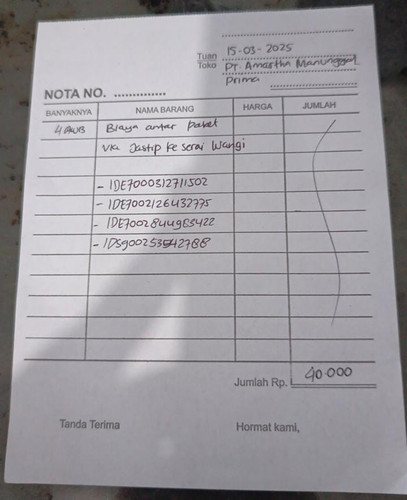 15-03-2025
Tuan
Toko PT. Amartha Manunggal
Prima
NOTA NO. ..............
BANYAKNYA NAMA BARANG HARGA JUMLAH
Biaya antar paket
via Jastip ke serai Wangi
- IDE7000312711502
- IDE7002126432775
- IDE7002844983422
- IDS900253542788
Jumlah Rp. 40.000
Tanda Terima Hormat kami,